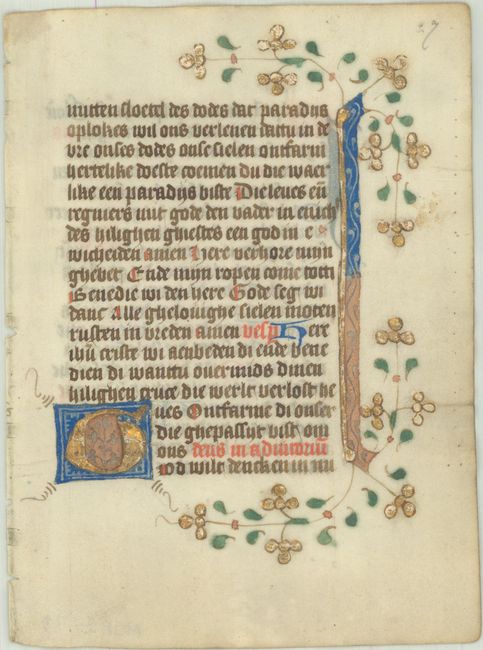 27
mitten sloetel des dodes dat paradijs
oplokes wil ons verlenen dattu in de
vre onses dodes onse sielen ontfarm
hertelike doeste comen du die waer
like een paradijs biste Die leves eñ
regniers mit gode den vader in enich
des hilighen ghiestes een god in e
wicheiden amen Here verhore mijn
ghebet Ende mijn ropen come toti
Benedie wi den here Gode seg wi
danc Alle ghelovighe sielen moten
rusten in vreden amen vesp Here
ihu criste wi aenbeden di ende bene
dien di wanttu overmids dinen
hilighen cruce die werlt verlost he
ves Ontfarme di onser
die ghepassijt bist om
ons deus in adiutoriu
God wilt dencken in mi